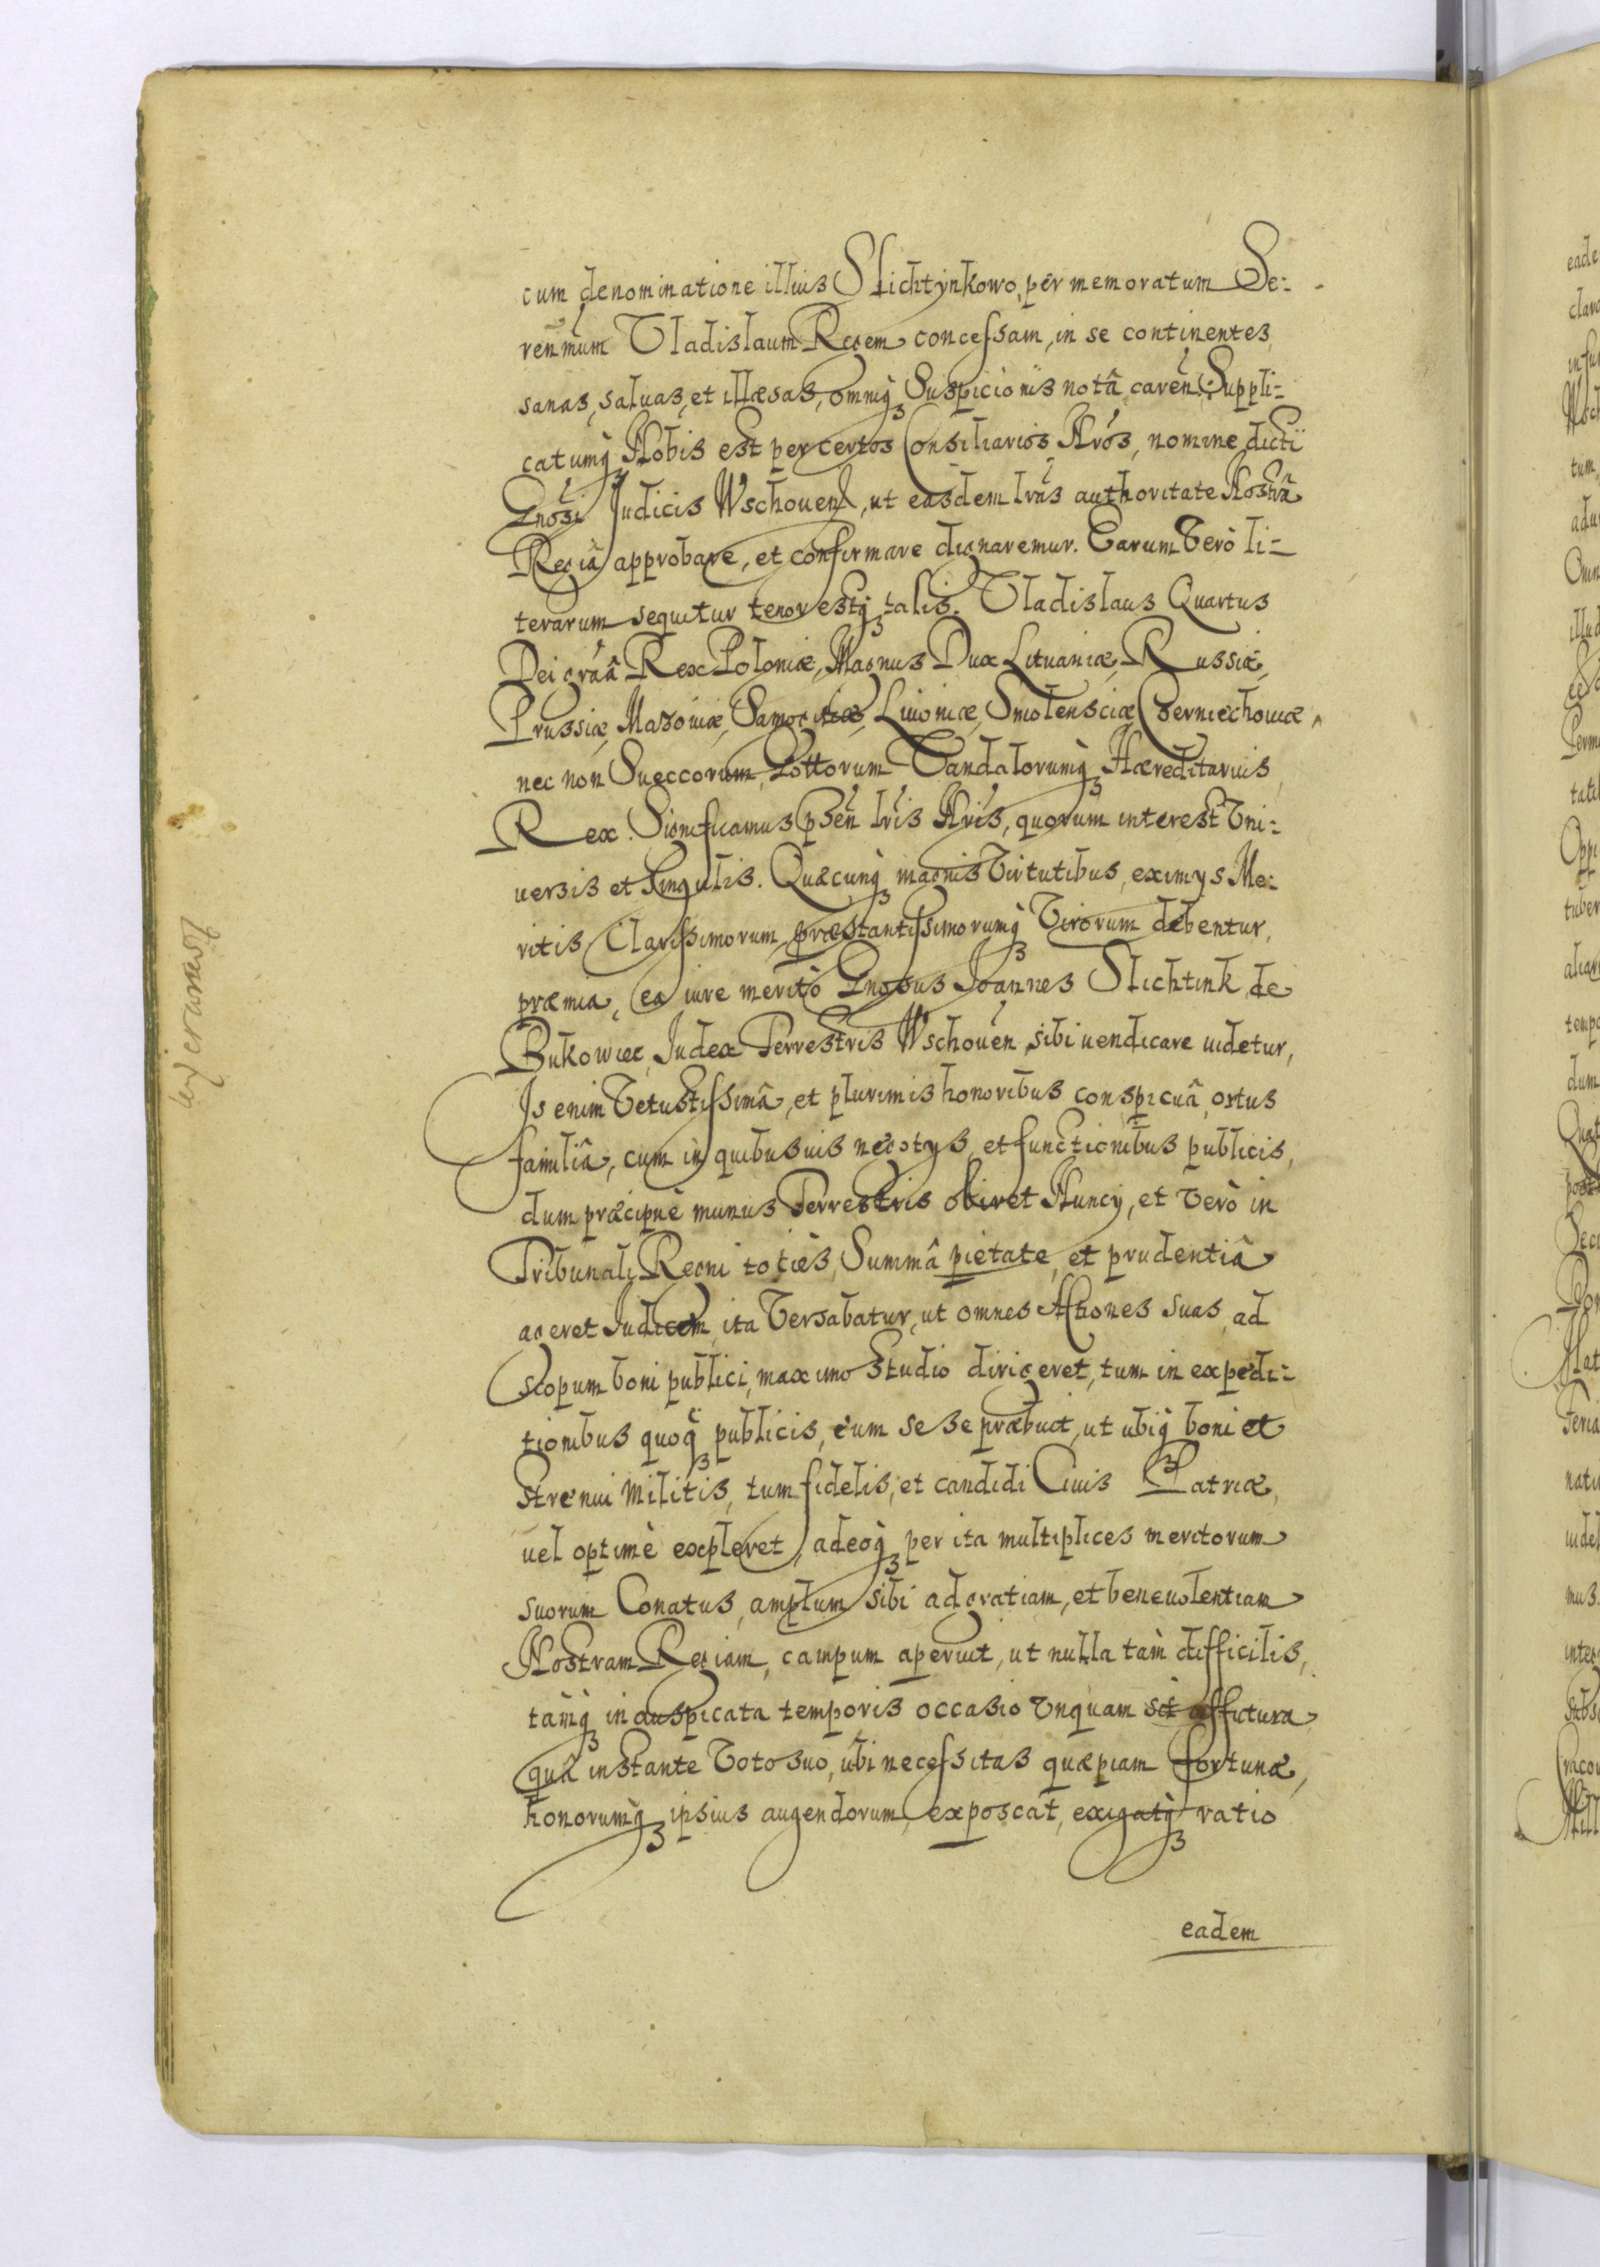 cum denominatione illius Slichtynkowo, per memoratum Se:
ren mum Vladislaum Regem concessam, in se continentes,
sanas, saluas, et illæsas, omniq; Suspicionis notâ caren. Suppli:
catumq; Nobis est per certos Consiliarios Nros, nomine dicti
Gnosi Judicis Wschouen, ut easdem lras authoritate Nostrâ
Regiâ approbare, et confirmare dignaremur. Earum Verò li:
terarum sequitur tenor estq; talis. Vladislaus Quartus
Dei grâa Rex Poloniæ, Magnus Dux Lituaniæ, Russiæ,
Prussiæ, Masouiæ, Samogitiæ, Liuoniæ, Smolensciæ Czerniechouiæ,
nec non Sueccorum, Gottorum Vandalorumq; Hæreditarius
Rex. Significamus psen lris Nris, quorum interest Vni:
uersis et singulis. Quæcunq; magnis Virtutibus, eximys Me:
ritis, Clarissimorum, præstantissimorumq; Virorum debentur,
præmia, ea iure meritò Gnosus Joannes Slichtink de
Bukowiec, Judex Terrestris Wschouen sibi uendicare uidetur,
Is enim Vetustissimâ, et plurimis honoribus conspicuâ ortus
familiâ, cum in quibusuis negotys, et functionibus publicis,
dum præcipuè munus Terrestris obiret Nuncy, et Verò in
Tribunali Regni toties, Summâ pietate, et prudentiâ
ageret Judicem, ita Versabatur, ut omnes Actiones suas, ad
scopum boni publici, maximo Studio dirigeret, tum in expedi:
tionibus quoq; publicis, eum se se præbuit, ut ubiq; boni et
Strenui Militis, tum fidelis, et candidi Ciuis Patriæ,
uel optimè expleret, adeoq; per ita multiplices meritorum
suorum Conatus, amplum sibi ad gratiam, et beneuolentiam
Nostram Regiam, campum aperuit, ut nulla tam difficilis,
tamq; inauspicata temporis occasio Vnquam sit affutura
quâ instante Voto suo, ubi necessitas quæpiam fortunæ,
honorumq; ipsius augendorum exposcat, exigatq; ratio
eadem